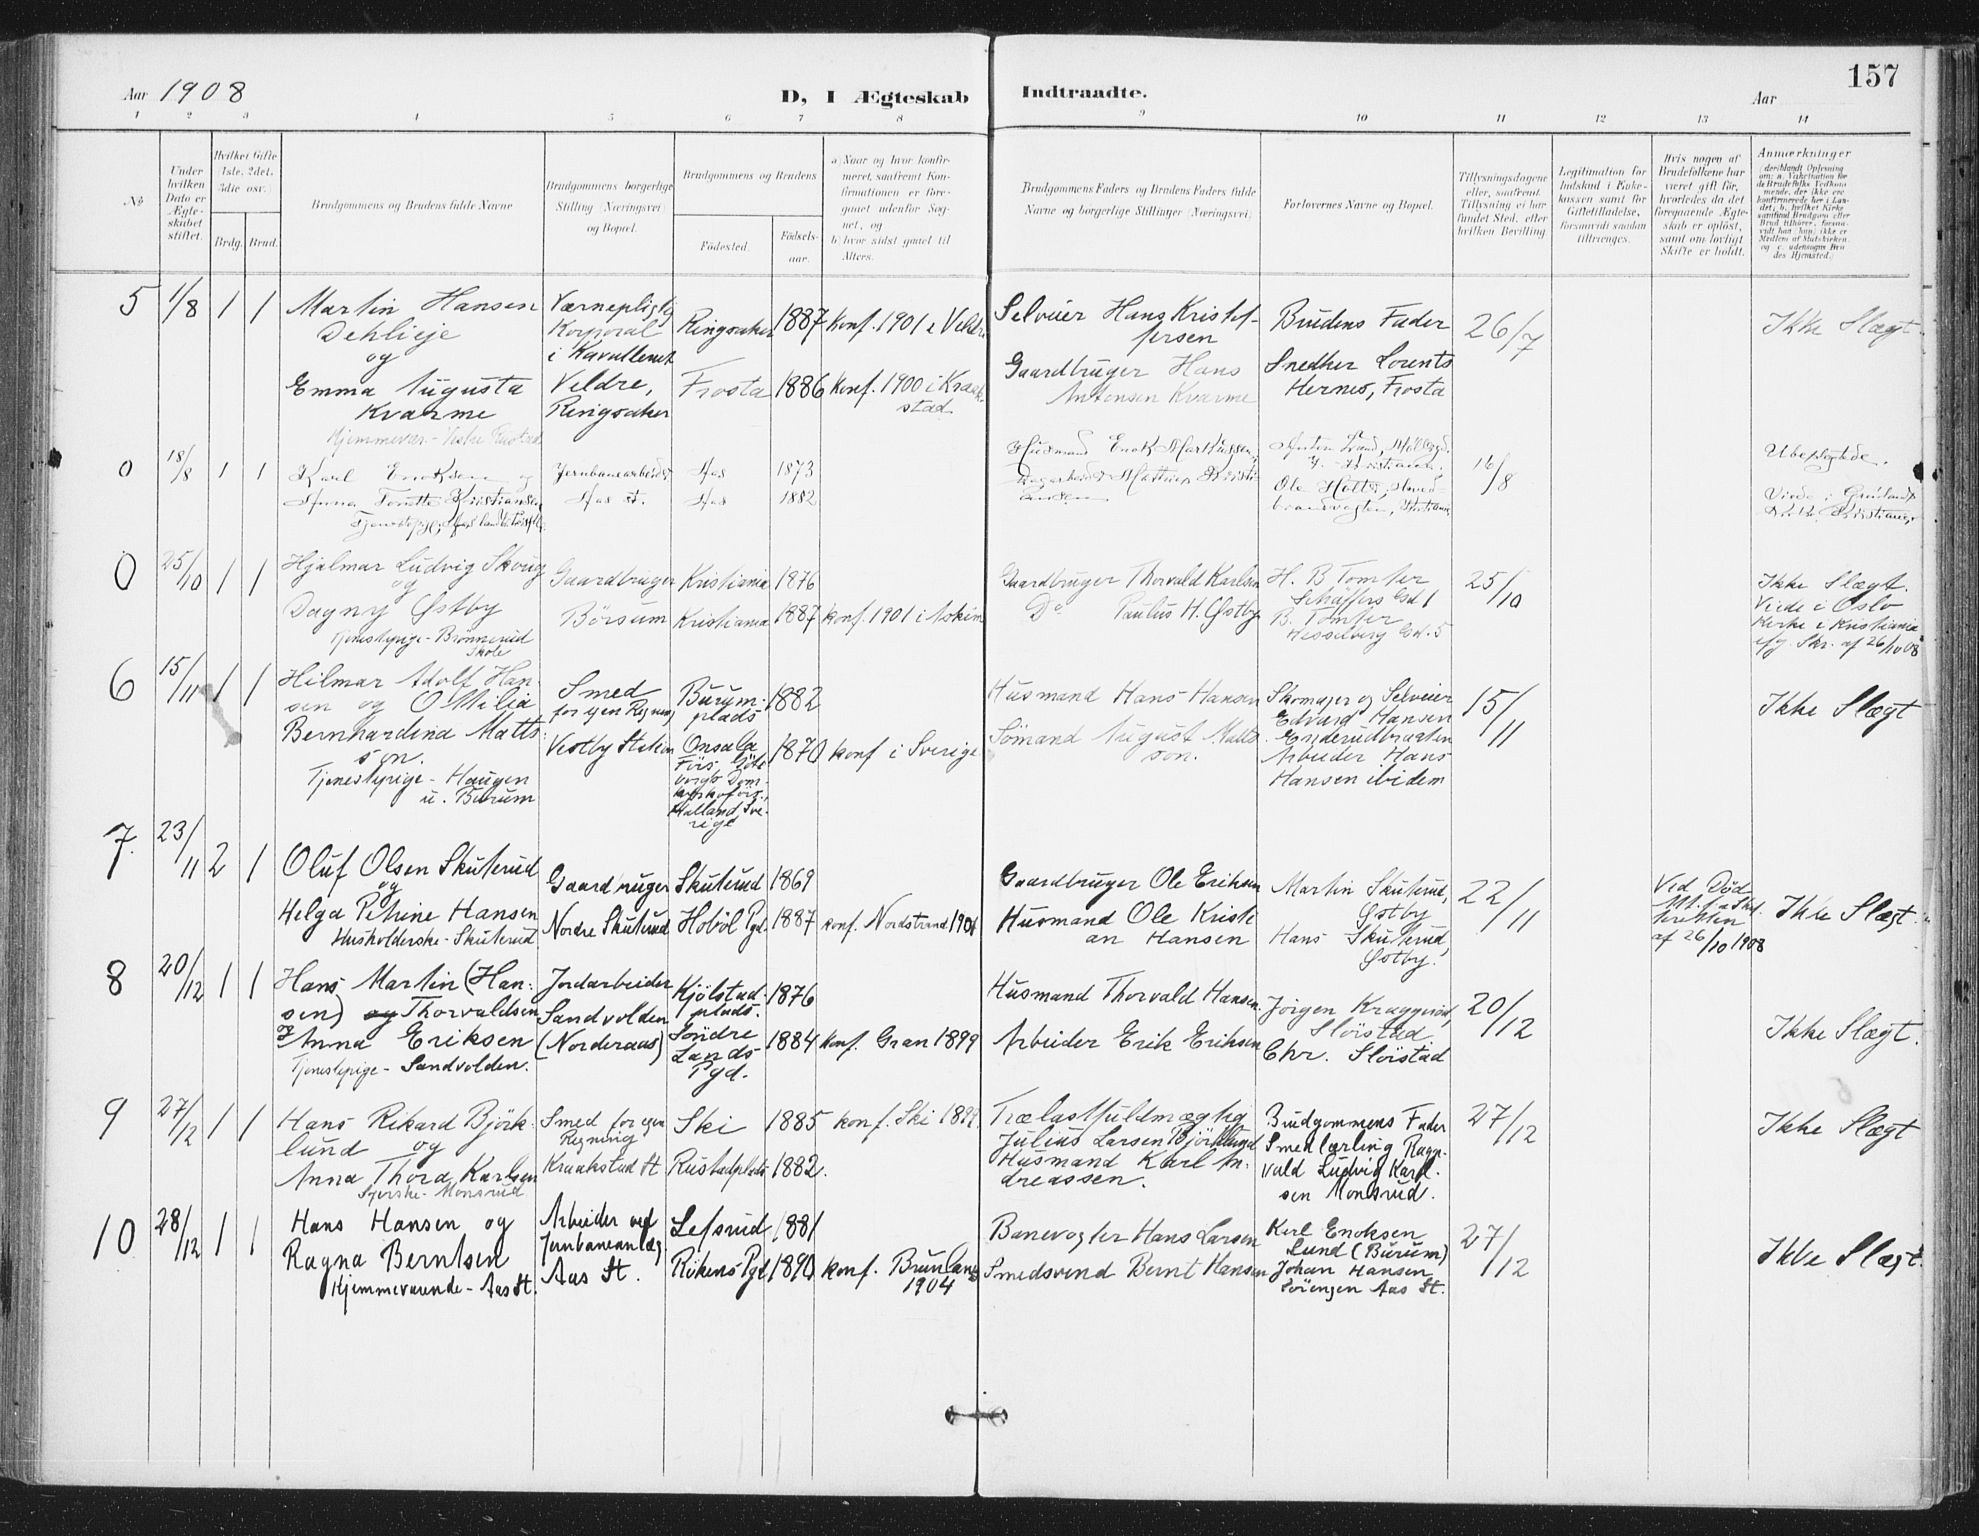 Aar 1908
D, I Ægteskab Indtraadte.
Aar
157
1 2 3 4 5 6 7 8 9 10 11 12 13 14
No
Under hvilken Dato er Ægteskabet stiftet.
Hvilket Gifte (1ste, 2det, 3die osv.)
Brdg. Brud.
Brudgommens og Brudens fulde Navne
Brudgommens borgerlige Stilling (Næringsvei) og Bopæl.
Brudgommens og Brudens
Födested.
Födselsaar.
a) Naar og hvor konfirmeret, saafremt Konfirmationen er foregaaet udenfor Sognet, og
b) hvor sidst gaaet til Alters.
Brudgommens Faders og Brudens Faders fulde Navne og borgerlige Stillinger (Næringsvei)
Forlovernes Navne og Bopæl.
Tillysningsdagene eller, saafremt Tillysning ei har fundet Sted, efter hvilken Bevilling
Legitimation for Indskud i Enkekassen samt for Giftetilladelse, forsaavidt saadan tiltrænges.
Hvis nogen af Brudefolkene har været gift før, hvorledes da det foregaaende Ægteskab er oplöst, samt om lovligt Skifte er holdt.
Anmærkninger
5 1/8 1 1
Martin Hansen
Dehlieje
og
Emma Augusta
Kvarme
Værnepligtig
Korporal
i Kavalleriet
Veldre,
Ringsaker
Ringsaker 1887 konf. 1901 i Veldre
Frosta 1886 konf. 1900 i Kraakstad
Selveier Hans Kristofersen
Gaardbruger Hans
Antonsen Kvarme
Brudens Fader
Snedker Lorents
Hernes, Frosta
26/7
Ikke Slægt.
0 18/8 1 1
Karl Enoksen og
Anna Torette Kristiansen
Jernbanearbeider
Aas St.
Aas 1873
Aas 1882
Husmand Enok Markussen,
Ole
16/8
Ubeslegtede.
Viede i Grønlands
Kirke Kristiania
0 25/10 1 1
Hjalmar Ludvig Skoug
og
Dagny Østby
Tjenestepige - Brönnerud
Skole
Gaardbruger
Börsum
Kristiania 1876
Kristiania 1887 konf. 1901 i Askim
Gaardbruger Thorvald Karlsen
Do Paulus H. Østby
H. B Tomter
Schäffers Gd 1
B. Tomter
Hesselberg Gd. 5
25/10
Ikke Slægt.
Viede i Oslo
Kirke i Kristiania
efg. Skr. af 26/10 08
6 15/11 1 1
Hilmar Adolf Hansen
og Otilia
Bernhardina Mattson.
Tjenestepige - Haugen
u. Burum
Smed
for egen Regning
Vestby Station
Burumplads
1882
Onsala
Halland, Sverige
1870 konf i Sverige
Husmand Hans Hansen
Sömand August Mattson.
Skomager og Selveier
Edvard Hansen
Arbeider Hans
Hansen ibidem
15/11
Ikke Slægt
7. 23/11 2 1
Oluf Olsen Skuterud
og
Helga Petrine Hansen
Husholderske - Skuterud
Gaardbruger
Nordre Skuterud
Skuterud 1869
Hoböl Pgd. 1887 konf. Nordstrand 1901
Gaardbruger Ole Eriksen
Husmand Ole Kristian Hansen
Martin Skuterud,
Østby
Hans Skuterud,
Østby.
22/11
Ved Död
af 26/10 1908
Ikke Slægt.
8 20/12 1 1
Hans Martin (Hansen) Thorvaldsen
og Anna Eriksen
Tjenestepige - Sandvolden.
Jordarbeider
Sandvolden
(Norderaas)
Kjölstadplads.
1876
Söndre
Lands
Pgd.
1884 konf. Gran 1899
Husmand Thorvald Hansen
Arbeider Erik Eriksen
Jörgen Kraggerud,
Slöistad
Chr. Slöistad
20/12
Ikke Slægt.
9 27/12 1 1
Hans Rikard Björklund
og
Anna Thora Karlsen
Syerske - Monsrud
Smed for egen
Regning
Kraakstad St.
Ski 1885 konf. Ski 1899
Rustadplads 1882.
Trælastfuldmægtig
Julius Larsen Björklund
Husmand Karl Andreassen.
Brudgommens Fader
Smedlærling Ragnvald Ludvig Karlsen Monsrud.
27/12
Ikke Slægt
10 28/12 1 1
Hans Hansen og
Ragna Berntsen
Hjemmeværende - Aas St.
Arbeider ved
Jernbaneanlæg.
Aas St.
Lefsrud 1881
Rökens Pgd 1890 konf. Brunlanes
1904
Banevogter Hans Larsen
Smedsvend Bernt Hansen
Karl Enoksen
Lund (Burum)
Johan Hansen
Sörengen Aas St.
27/12
Ikke Slægt.